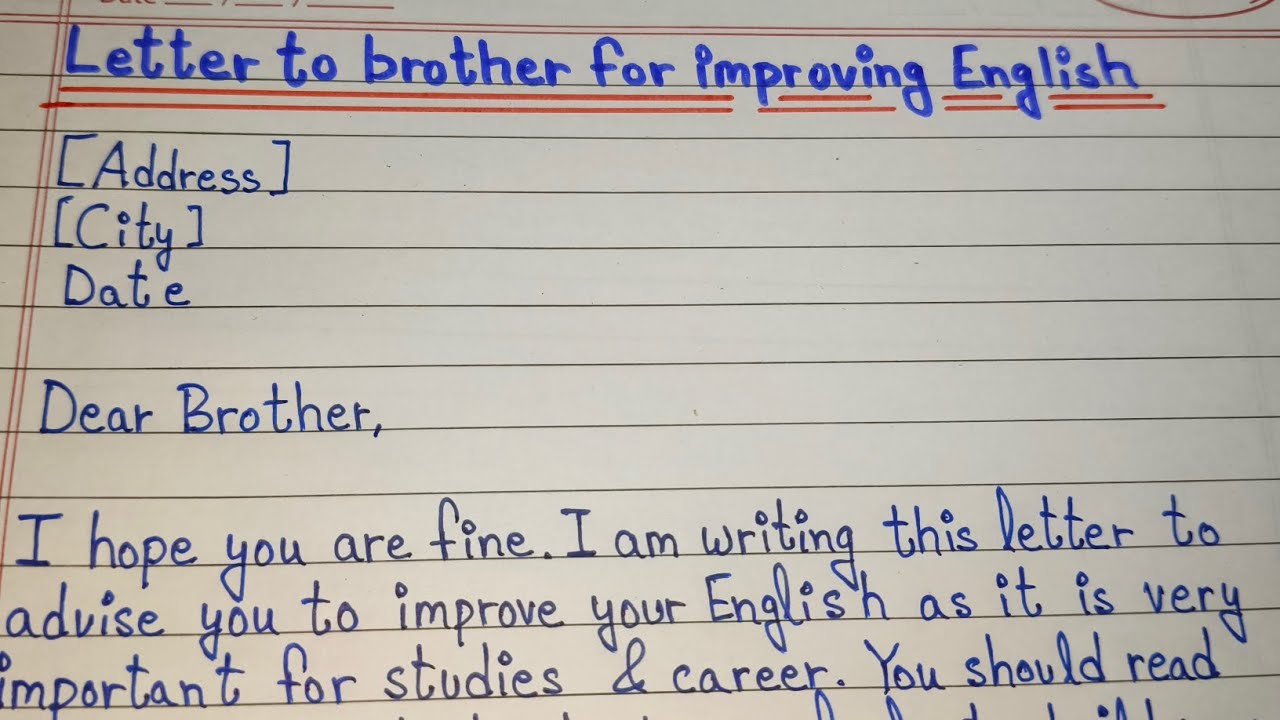 Letter to brother for improving English
[Address]
[City]
Date
Dear Brother,
I hope you are fine. I am writing this letter to
advise you to improve your English as it is very
important for studies & career. You should read